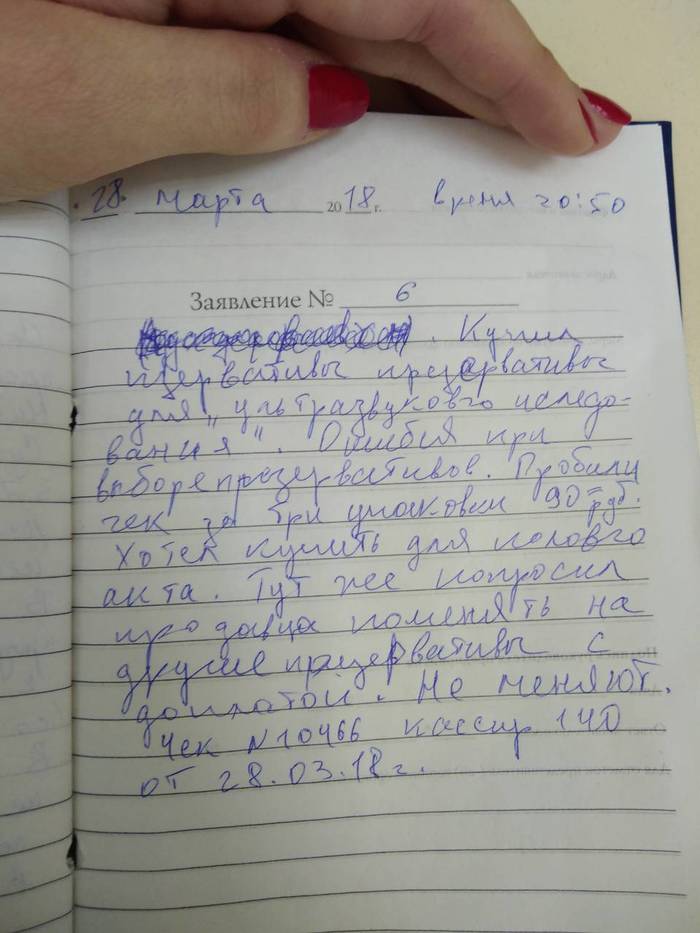 28 марта 2018 г. время 20:50
Заявление № 6
. Купил
призервативы презервативы
для „ультразвуковго исследо-
вания". Ошибся при
выборе презервативов. Пробили
чек за три упаковки 90= руб.
Хотел купить для половго
акта. Тут же попросил
продавца поменять на
другие призервативы с
доплатой. Не меняют.
Чек №10466 кассир 140
от 28.03.18г.